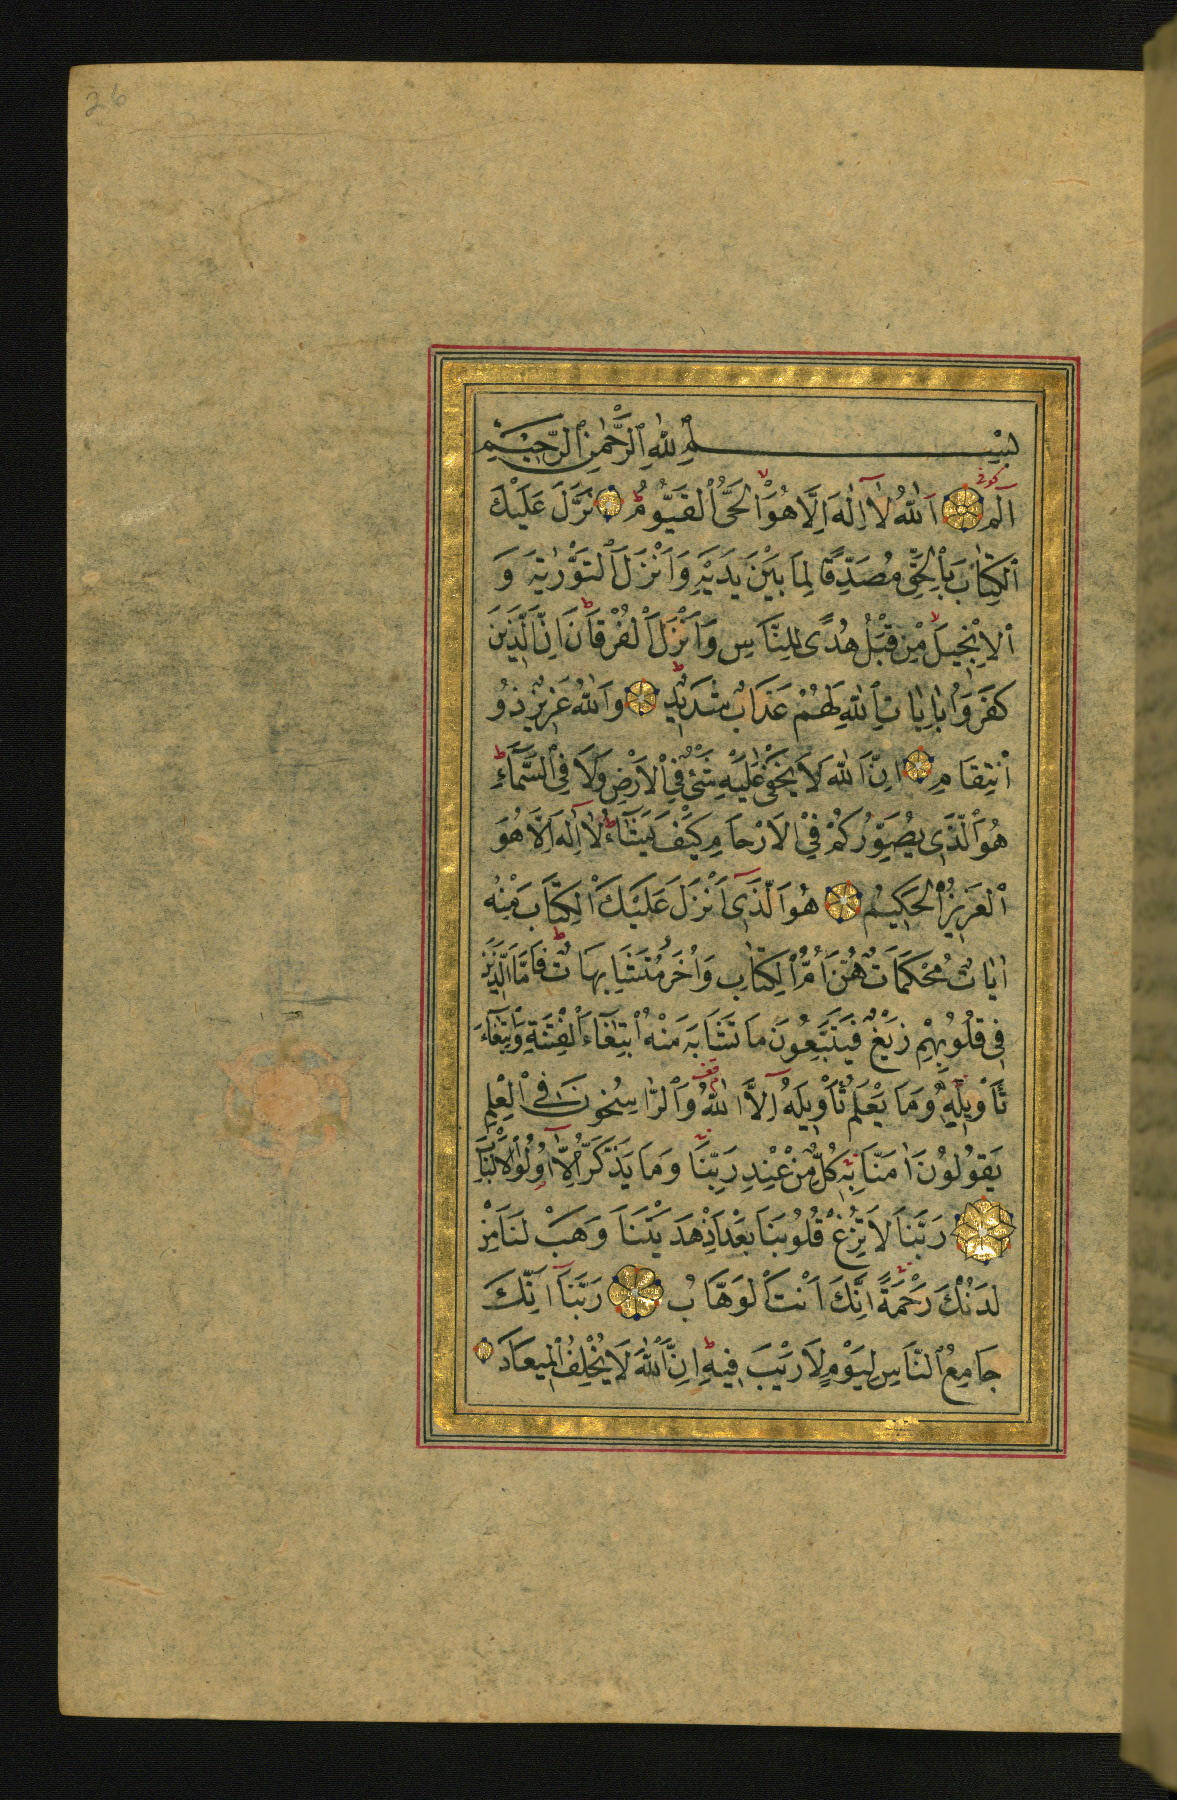 26
بِسْمِ ٱللّٰهِ ٱلرَّحْمٰنِ ٱلرَّحِيْمِ
كوفى
الٓمٓ اَللّٰهُ لَاۤ اِلٰهَ اِلَّا هُوَ ٱلْحَىُّ ٱلْقَيُّوْمُ نَزَّلَ عَلَيْكَ
ٱلْكِتَابَ بِٱلْحَقِّ مُصَدِّقًا لِمَا بَيْنَ يَدَيْهِ وَاَنْزَلَ ٱلتَّوْرٰيةَ وَ
ٱلْاِنْجِيلَ مِنْ قَبْلُ هُدًى لِلنَّاسِ وَاَنْزَلَ ٱلْفُرْقَانَ اِنَّ ٱلَّذِينَ
كَفَرُوا بِاٰيَاتِ ٱللّٰهِ لَهُمْ عَذَابٌ شَدِيدٌ وَٱللّٰهُ عَزِيزٌ ذُو
ٱنْتِقَامٍ اِنَّ ٱللّٰهَ لَا يَخْفٰى عَلَيْهِ شَىْءٌ فِي ٱلْاَرْضِ وَلَا فِى ٱلسَّمَاۤءِ
هُوَ ٱلَّذِى يُصَوِّرُكُمْ فِي ٱلْاَرْحَامِ كَيْفَ يَشَاۤءُ لَاۤ اِلٰهَ اِلَّا هُوَ
ٱلْعَزِيزُ ٱلْحَكِيمُ هُوَ ٱلَّذِىۤ اَنْزَلَ عَلَيْكَ ٱلْكِتَابَ مِنْهُ
اٰيَاتٌ مُحْكَمَاتٌ هُنَّ اُمُّ ٱلْكِتَابِ وَاُخَرُ مُتَشَابِهَاتٌ فَاَمَّا ٱلَّذِينَ
فِى قُلُوبِهِمْ زَيْغٌ فَيَتَّبِعُونَ مَا تَشَابَهَ مِنْهُ ٱبْتِغَاۤءَ ٱلْفِتْنَةِ وَٱبْتِغَاۤءَ
تَأْوِيلِهِ وَمَا يَعْلَمُ تَأْوِيلَهُ اِلَّا ٱللّٰهُ وَٱلرَّاسِخُونَ فِى ٱلْعِلْمِ
يَقُولُونَ اٰمَنَّا بِهِ كُلٌّ مِنْ عِنْدِ رَبِّنَا وَمَا يَذَّكَّرُ اِلَّاۤ اُولُوا ٱلْاَلْبَابِ
رَبَّنَا لَا تُزِغْ قُلُوبَنَا بَعْدَ اِذْ هَدَيْتَنَا وَهَبْ لَنَا مِنْ
لَدُنْكَ رَحْمَةً اِنَّكَ اَنْتَ ٱلْوَهَّابُ رَبَّنَاۤ اِنَّكَ
جَامِعُ ٱلنَّاسِ لِيَوْمٍ لَا رَيْبَ فِيهِ اِنَّ ٱللّٰهَ لَا يُخْلِفُ ٱلْمِيعَادَ